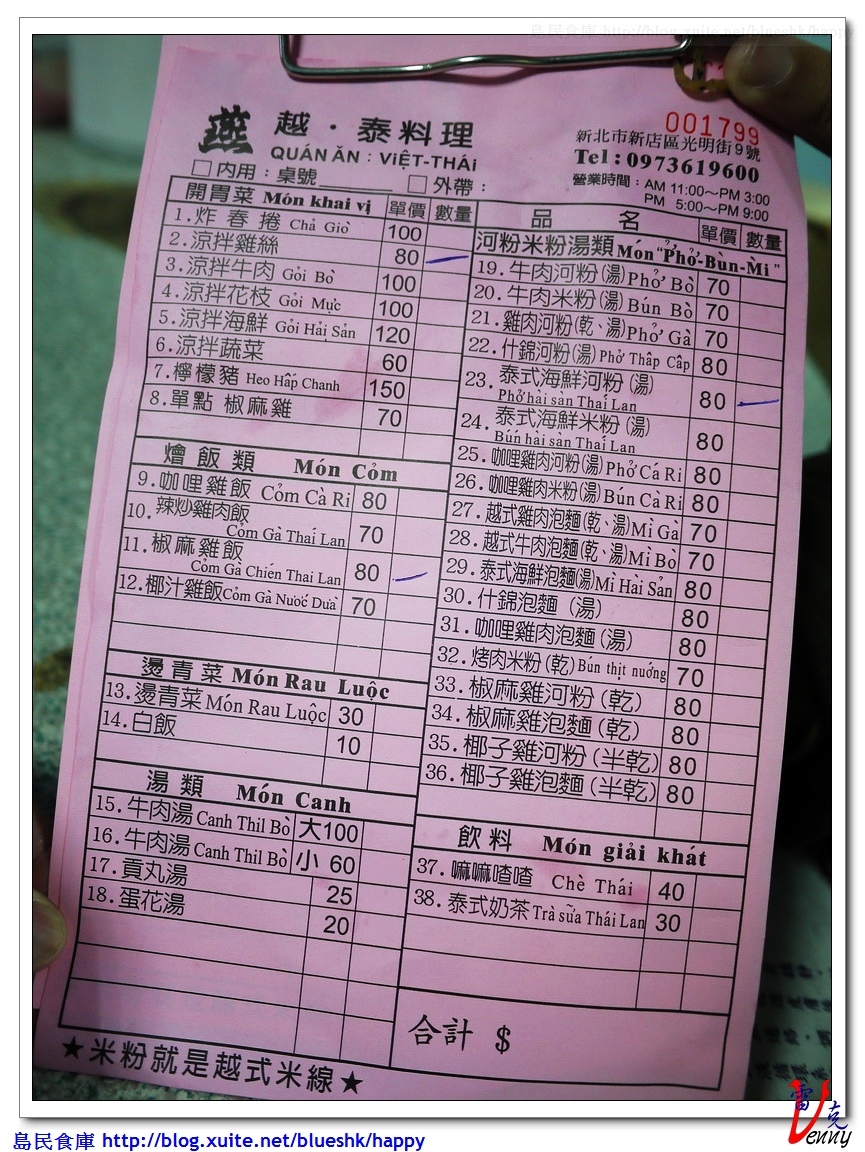 島民食庫 http://blog.xuite.net/blueshk/happy
001799
燕 越·泰料理
QUÁN ĂN : ViỆT-THÁi
新北市新店區光明街9號
Tel:0973619600
營業時間：AM 11:00～PM 3:00
PM 5:00～PM 9:00
□內用：桌號 □外帶：
開胃菜 Món khai vị 單價 數量
1.炸春捲 Chả Giò 100
2.涼拌雞絲 80
3.涼拌牛肉 Gỏi Bò 100
4.涼拌花枝 Gỏi Mực 100
5.涼拌海鮮 Gỏi Hải Sản 120
6.涼拌蔬菜 60
7.檸檬豬 Heo Hấp Chanh 150
8.單點 椒麻雞 70
燴飯類 Món Cỏm
9.咖哩雞飯 Cỏm Cà Ri 80
10.辣炒雞肉飯
Cỏm Gà Thaí Lan 70
11.椒麻雞飯
Cỏm Gà Chiên Thai Lan 80
12.椰汁雞飯 Cỏm Gà Nước Dưà 70
燙青菜 Món Rau Luộc
13.燙青菜 Món Rau Luộc 30
14.白飯 10
湯類 Món Canh
15.牛肉湯 Canh Thil Bò 大100
16.牛肉湯 Canh Thil Bò 小 60
17.貢丸湯 25
18.蛋花湯 20
品 名 單價 數量
河粉米粉湯類 Món "Phở-Bùn-Mi"
19.牛肉河粉(湯) Phở Bò 70
20.牛肉米粉(湯) Bún Bò 70
21.雞肉河粉(乾、湯) Phở Gà 70
22.什錦河粉(湯) Phở Thâp Câp 80
23.泰式海鮮河粉(湯)
Phở hài sàn Thaí Lan 80
24.泰式海鮮米粉(湯)
Bún hài sàn Thaí Lan 80
25.咖哩雞肉河粉(湯) Phở Cá Ri 80
26.咖哩雞肉米粉(湯) Bún Cà Ri 80
27.越式雞肉泡麵(乾、湯) Mì Gà 70
28.越式牛肉泡麵(乾、湯) Mì Bò 70
29.泰式海鮮泡麵(湯) Mì Hài Sản 80
30.什錦泡麵 (湯) 80
31.咖哩雞肉泡麵(湯) 80
32.烤肉米粉(乾) Bún thịt nướng 70
33.椒麻雞河粉(乾) 80
34.椒麻雞泡麵(乾) 80
35.椰子雞河粉(半乾) 80
36.椰子雞泡麵(半乾) 80
飲料 Món giải khát
37.嘛嘛喳喳 Chè Thái 40
38.泰式奶茶 Trà sữa Thái Lan 30
合計 $
★米粉就是越式米線★
雷克
Venny
島民食庫 http://blog.xuite.net/blueshk/happy